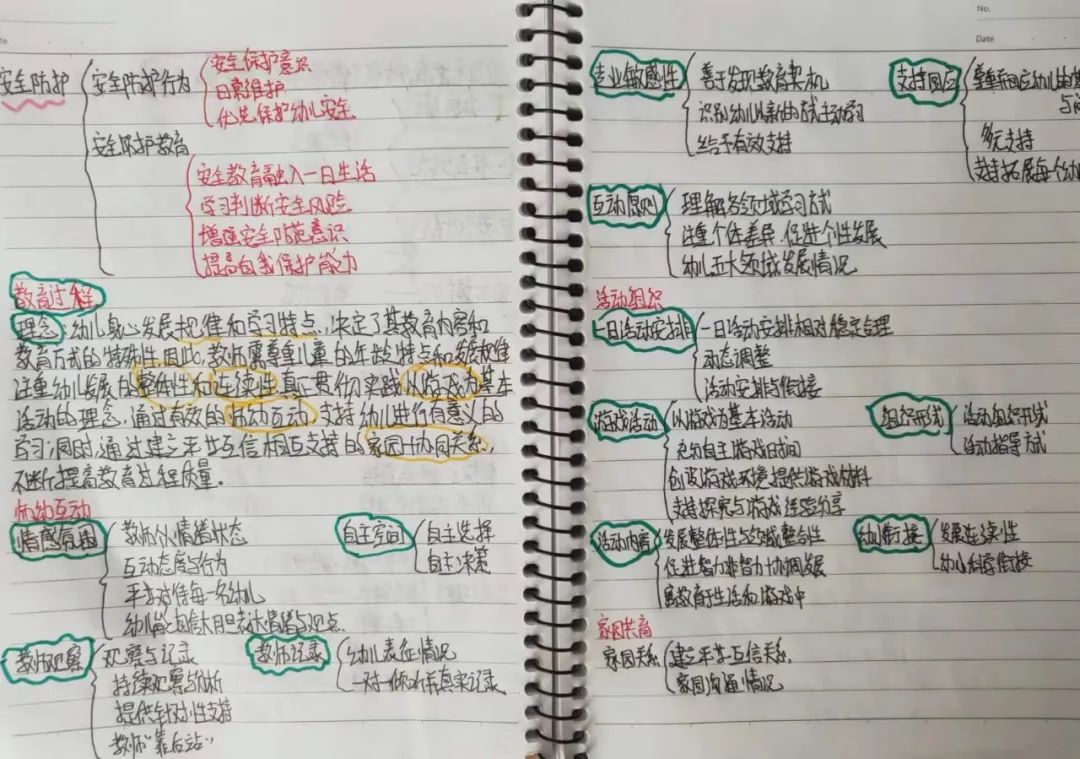 安全防护
安全防护行为
安全保护意识
日常维护
优先保护幼儿安全
安全保护教育
安全教育融入一日生活
学习判断安全风险
增强安全防范意识
提高自我保护能力
教育过程
理念：幼儿身心发展规律和学习特点，决定了其教育内容和
教育方式的特殊性。因此，教师需尊重儿童的年龄特点和发展规律
注重幼儿发展的整体性和连续性真正贯彻实践以游戏为基本
活动的理念，通过有效的师幼互动，支持幼儿进行有意义的
学习；同时，通过建立平等互信相互支持的家园协同关系，
不断提高教育过程质量。
师幼互动
情感氛围
教师个人情绪状态
互动态度与行为
平等对待每一名幼儿
幼儿能自信大胆表达情绪与观点
自主空间
自主选择
自主决策
教师观察
观察与记录
持续观察与分析
提供针对性支持
教师“靠后站”
教师记录
幼儿表征情况
一对一倾听并真实记录
No.
Date
专业敏感性
善于发现教育契机
识别幼儿以新的方式主动学习
给予有效支持
支持回应
尊重和回应幼儿的
多元支持
支持拓展每个幼
互动原则
理解各领域学习方式
注重个体差异，促进个性发展
幼儿五大领域发展情况
活动组织
一日活动安排
一日活动安排相对稳定合理
动态调整
活动安排与衔接
游戏活动
以游戏为基本活动
充足自主游戏时间
创设游戏环境提供游戏材料
支持探究与游戏经验分享
组织形式
活动组织形式
活动指导方式
活动内容
发展整体性与领域整合性
促进智力非智力协调发展
寓教育于生活和游戏中
幼小衔接
发展连续性
幼小科学衔接
家园共育
家园关系
建立平等互信关系
家园沟通情况